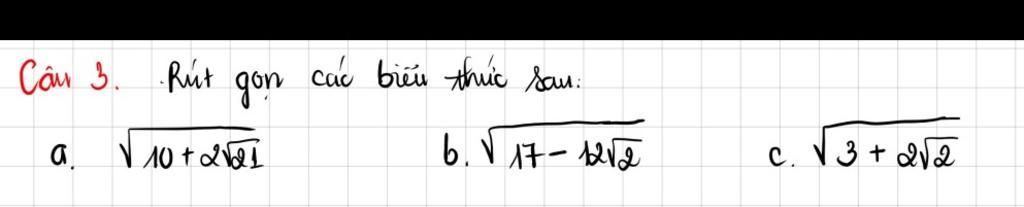 Câu 3. Rút gọn các biểu thức sau:
a. √(10 + 2√21) b. √(17 - 12√2) c. √(3 + 2√2)